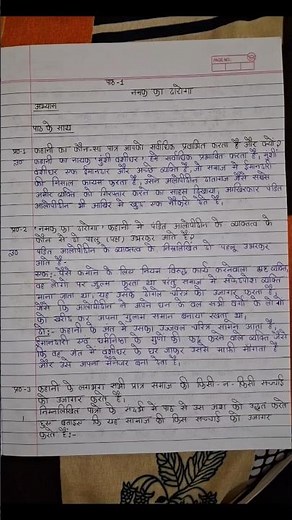 PAGE NO.
पाठ-1
नमक का दारोगा
अभ्यास
पाठ के साथ
प्र०-1 कहानी का कौन-सा पात्र आपको सर्वाधिक प्रभावित करता है और क्यों?
उ० कहानी का नायक मुंशी वंशीधर हमें सर्वाधिक प्रभावित करता है, मुंशी
वंशीधर एक ईमानदार और अच्छे व्यक्ति हैं, जो समाज में ईमानदारी
की मिसाल कायम करता है, उसने अलोपीदीन दातागंज जैसे सबसे
अमीर व्यक्ति को गिरफ्तार करने का साहस दिखाया, आखिरकार पंडित
अलोपीदीन भी आखिर में मुग्ध एक नौकरी देते हैं।
प्र०-2 'नमक का दारोगा' कहानी में पंडित अलोपीदीन के व्यक्तित्व के
कौन से दो पहलू (पक्ष) उभरकर आते हैं?
उ० पंडित अलोपीदीन के व्यक्तित्व के निम्नलिखित दो पहलू उभरकर
आते हैं -
एक:- पैसे कमाने के लिए नियम विरुद्ध कार्य करनेवाला भ्रष्ट व्यक्ति,
वह लोगों पर जुल्म करता था परंतु समाज में सफेदपोश व्यक्ति
माना जाता था, यह उसके दोगले चरित्र को उजागर करता है,
को खरीद व अपना गुलाम समान बनाया रखता था,
दो:- कहानी के अंत में उसका उज्ज्वल चरित्र सामने आता है,
ईमानदारी एवं धर्मनिष्ठा के गुणों की कद्र करने वाला व्यक्ति जैसे
कि वह अंत में वंशीधर के घर जाकर उससे माफी माँगता है
और उसे अपना मैनेजर बना देता है,
प्र०-3 कहानी के लगभग सभी पात्र समाज की किसी-न-किसी सच्चाई
को उजागर करते हैं।
निम्नलिखित पात्रों के संदर्भ में पाठ से उस अंश को उद्धृत करते
हुए बताइए कि यह समाज की किस सच्चाई को उजागर
करते हैं:-